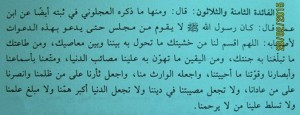 الفائدة الثامنة والثلاثون: قال: ومنها ما ذكره العجلوني في ثبته أيضًا عن ابن
قال: كان رسول الله ﷺ لا يقوم من مجلس حتى يدعو بهذه الدعوات
لأصحابه: اللهم اقسم لنا من خشيتك ما تحول به بيننا وبين معاصيك، ومن طاعتك
ما تبلغنا به جنتك، ومن اليقين ما تهون به علينا مصائب الدنيا، ومتعنا بأسماعنا
وأبصارنا وقوّتنا ما أحييتنا، واجعله الوارث منا، واجعل ثأرنا على من ظلمنا وانصرنا
على من عادانا، ولا تجعل مصيبتنا في ديننا ولا تجعل الدنيا أكبر همّنا ولا مبلغ علمنا
ولا تسلط علينا من لا يرحمنا.